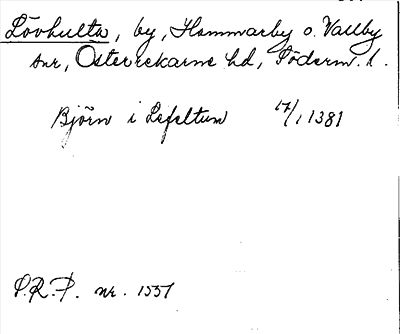 Lövhulta, by, Hammarby o. Vallby
snr, Österrekarne hd, Söderm. l.
Björn i Lefhltum 17/1 1381
S.R.P. nr. 1551